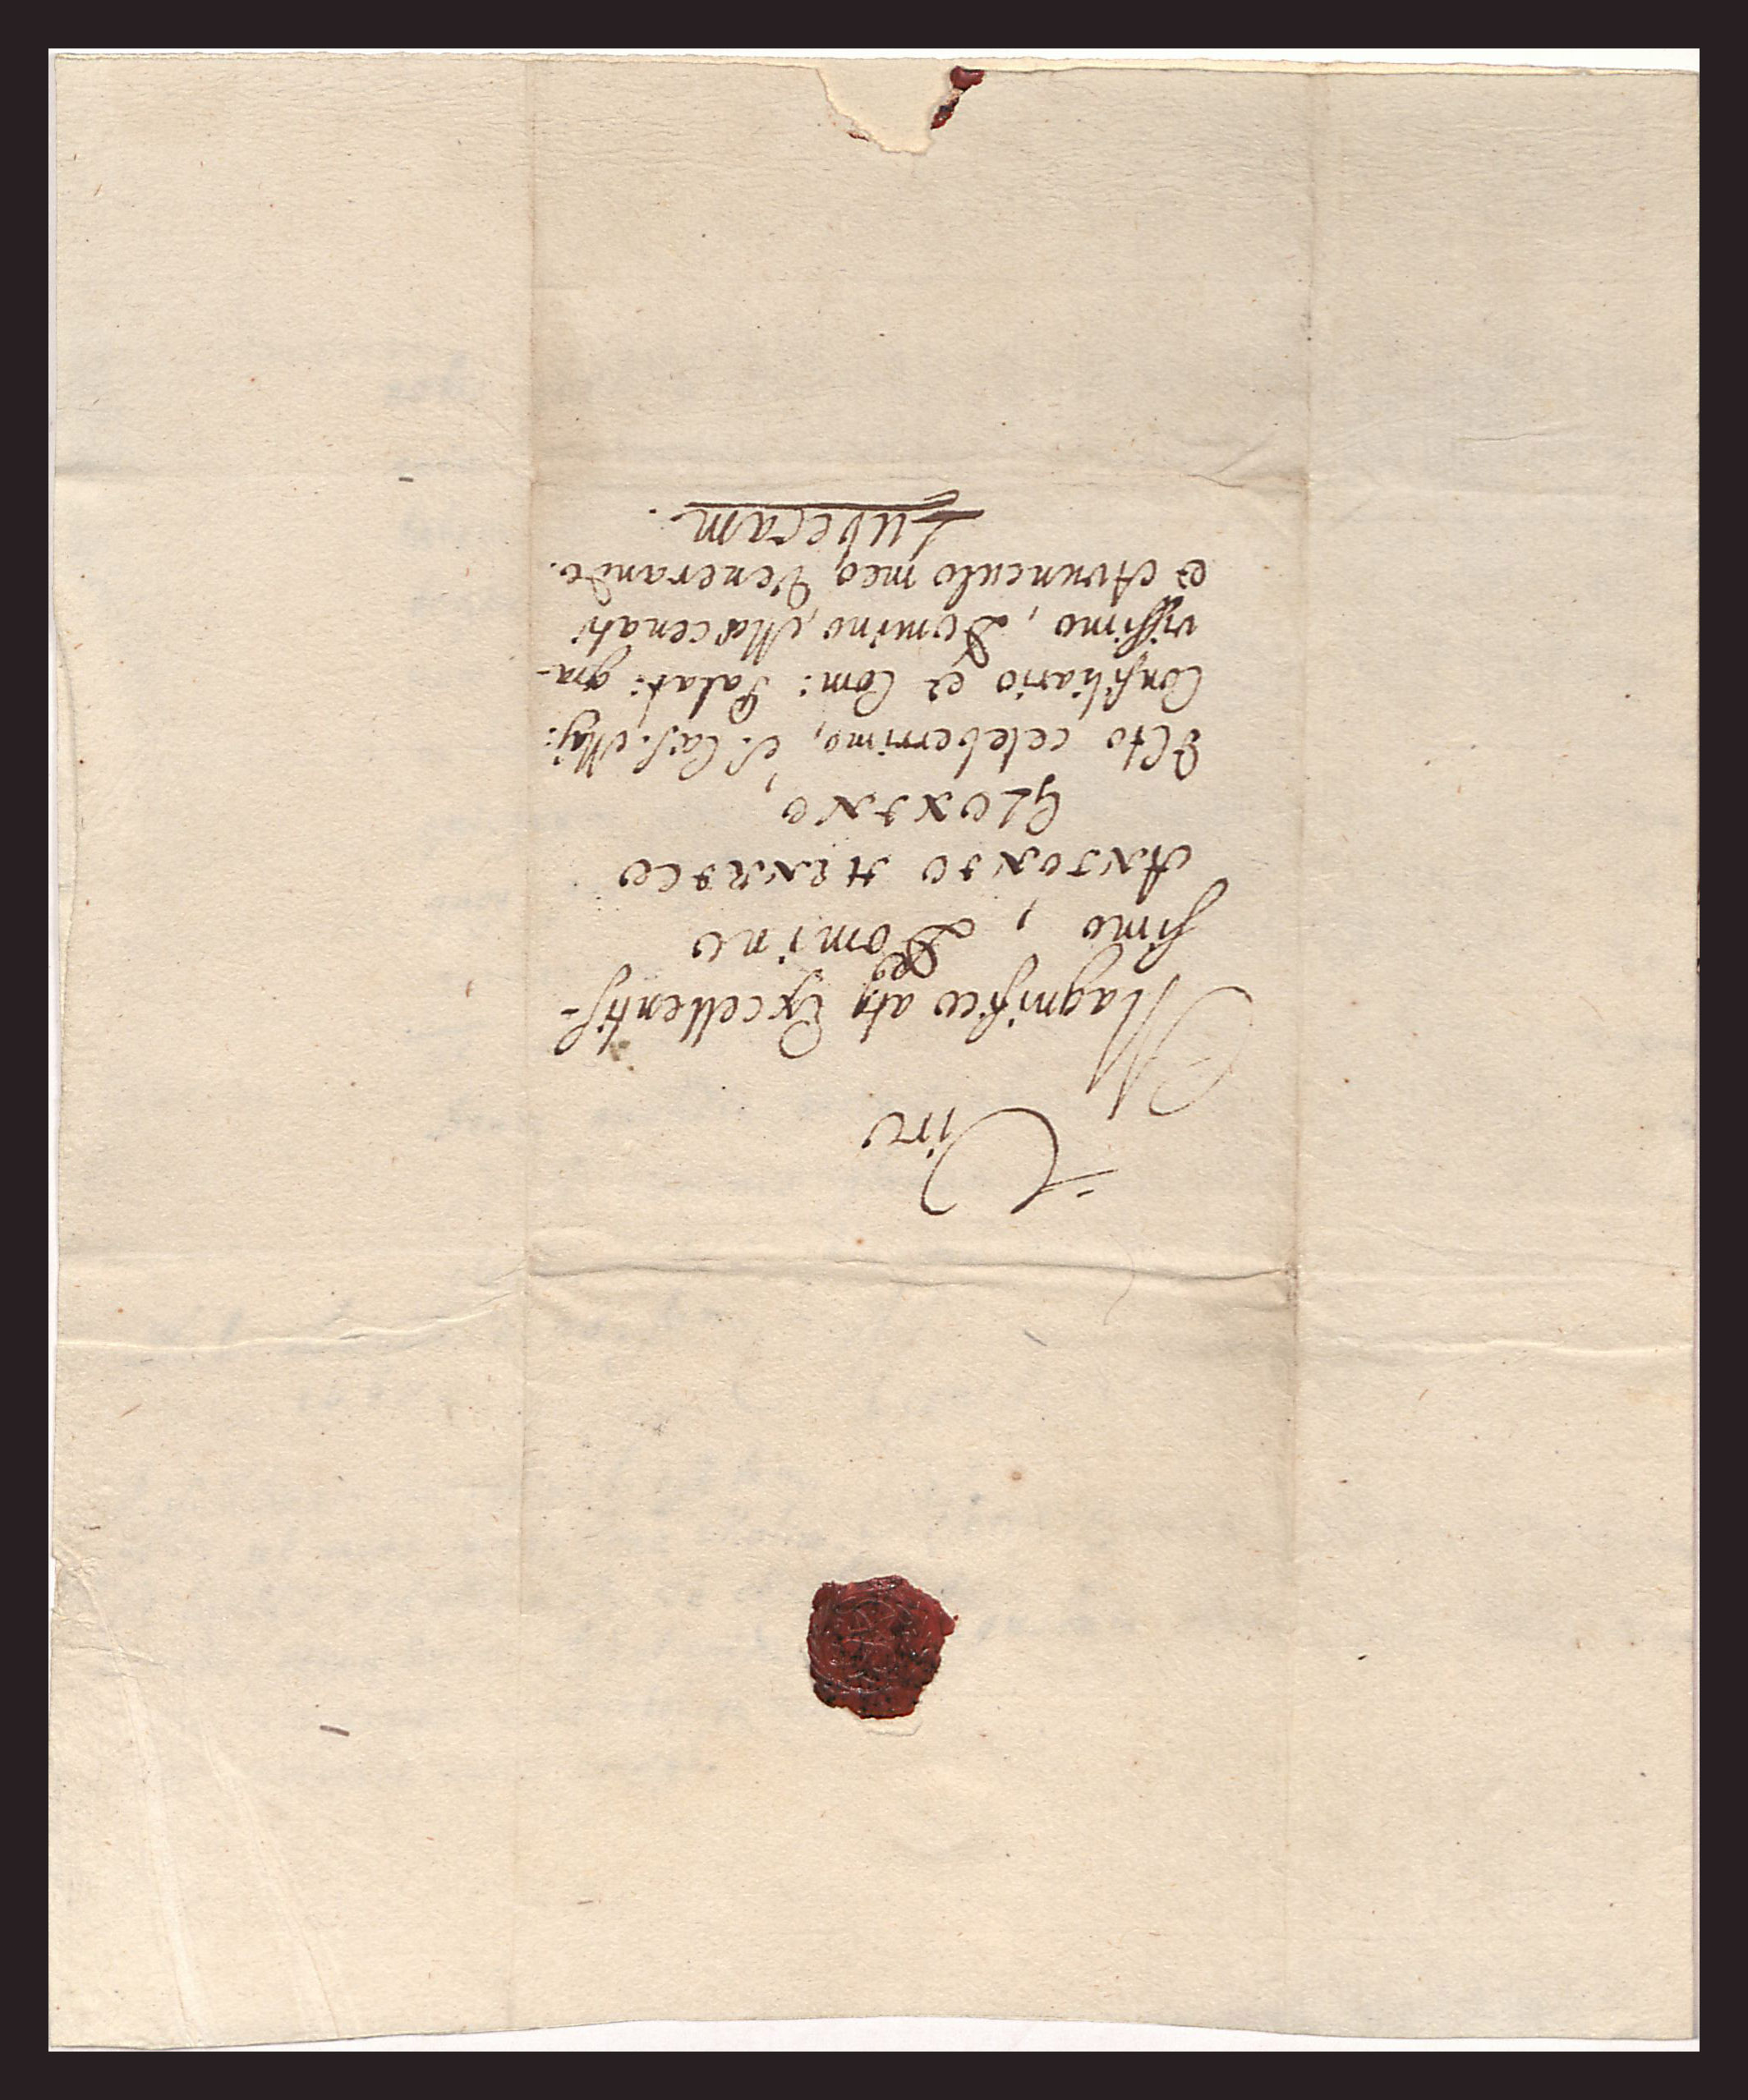 Viro
Magnifico atq Excellentis-
simo, Domino
ANTONIO HENRICO
GLOXINO,
JCto celeberrimo, S. Cæs. Maj:
Consiliario et Com: Palat: gra-
vissimo, Domino, Mæcenati
et Avunculo meo Venerando.
Lubecam.